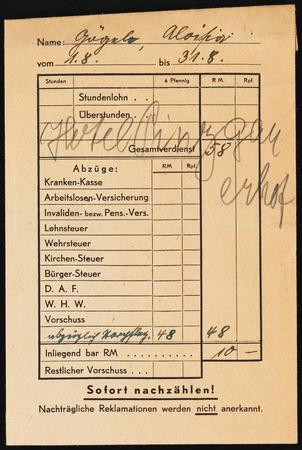 Name: Gögele, Aloisia
vom 1.8. bis 31.8.
Stunden à Pfennig RM Rpf
Stundenlohn . .
Überstunden . .
Hotel
Gesamtverdienst 58
erhof
Abzüge: RM Rpf
Kranken-Kasse
Arbeitslosen-Versicherung
Invaliden- bezw. Pens.-Vers.
Lohnsteuer
Wehrsteuer
Kirchen-Steuer
Bürger-Steuer
D. A. F.
W. H. W.
Vorschuss
abzüglich 48 48
Inliegend bar RM . . . 10 —
Restlicher Vorschuss . .
Sofort nachzählen!
Nachträgliche Reklamationen werden nicht anerkannt.